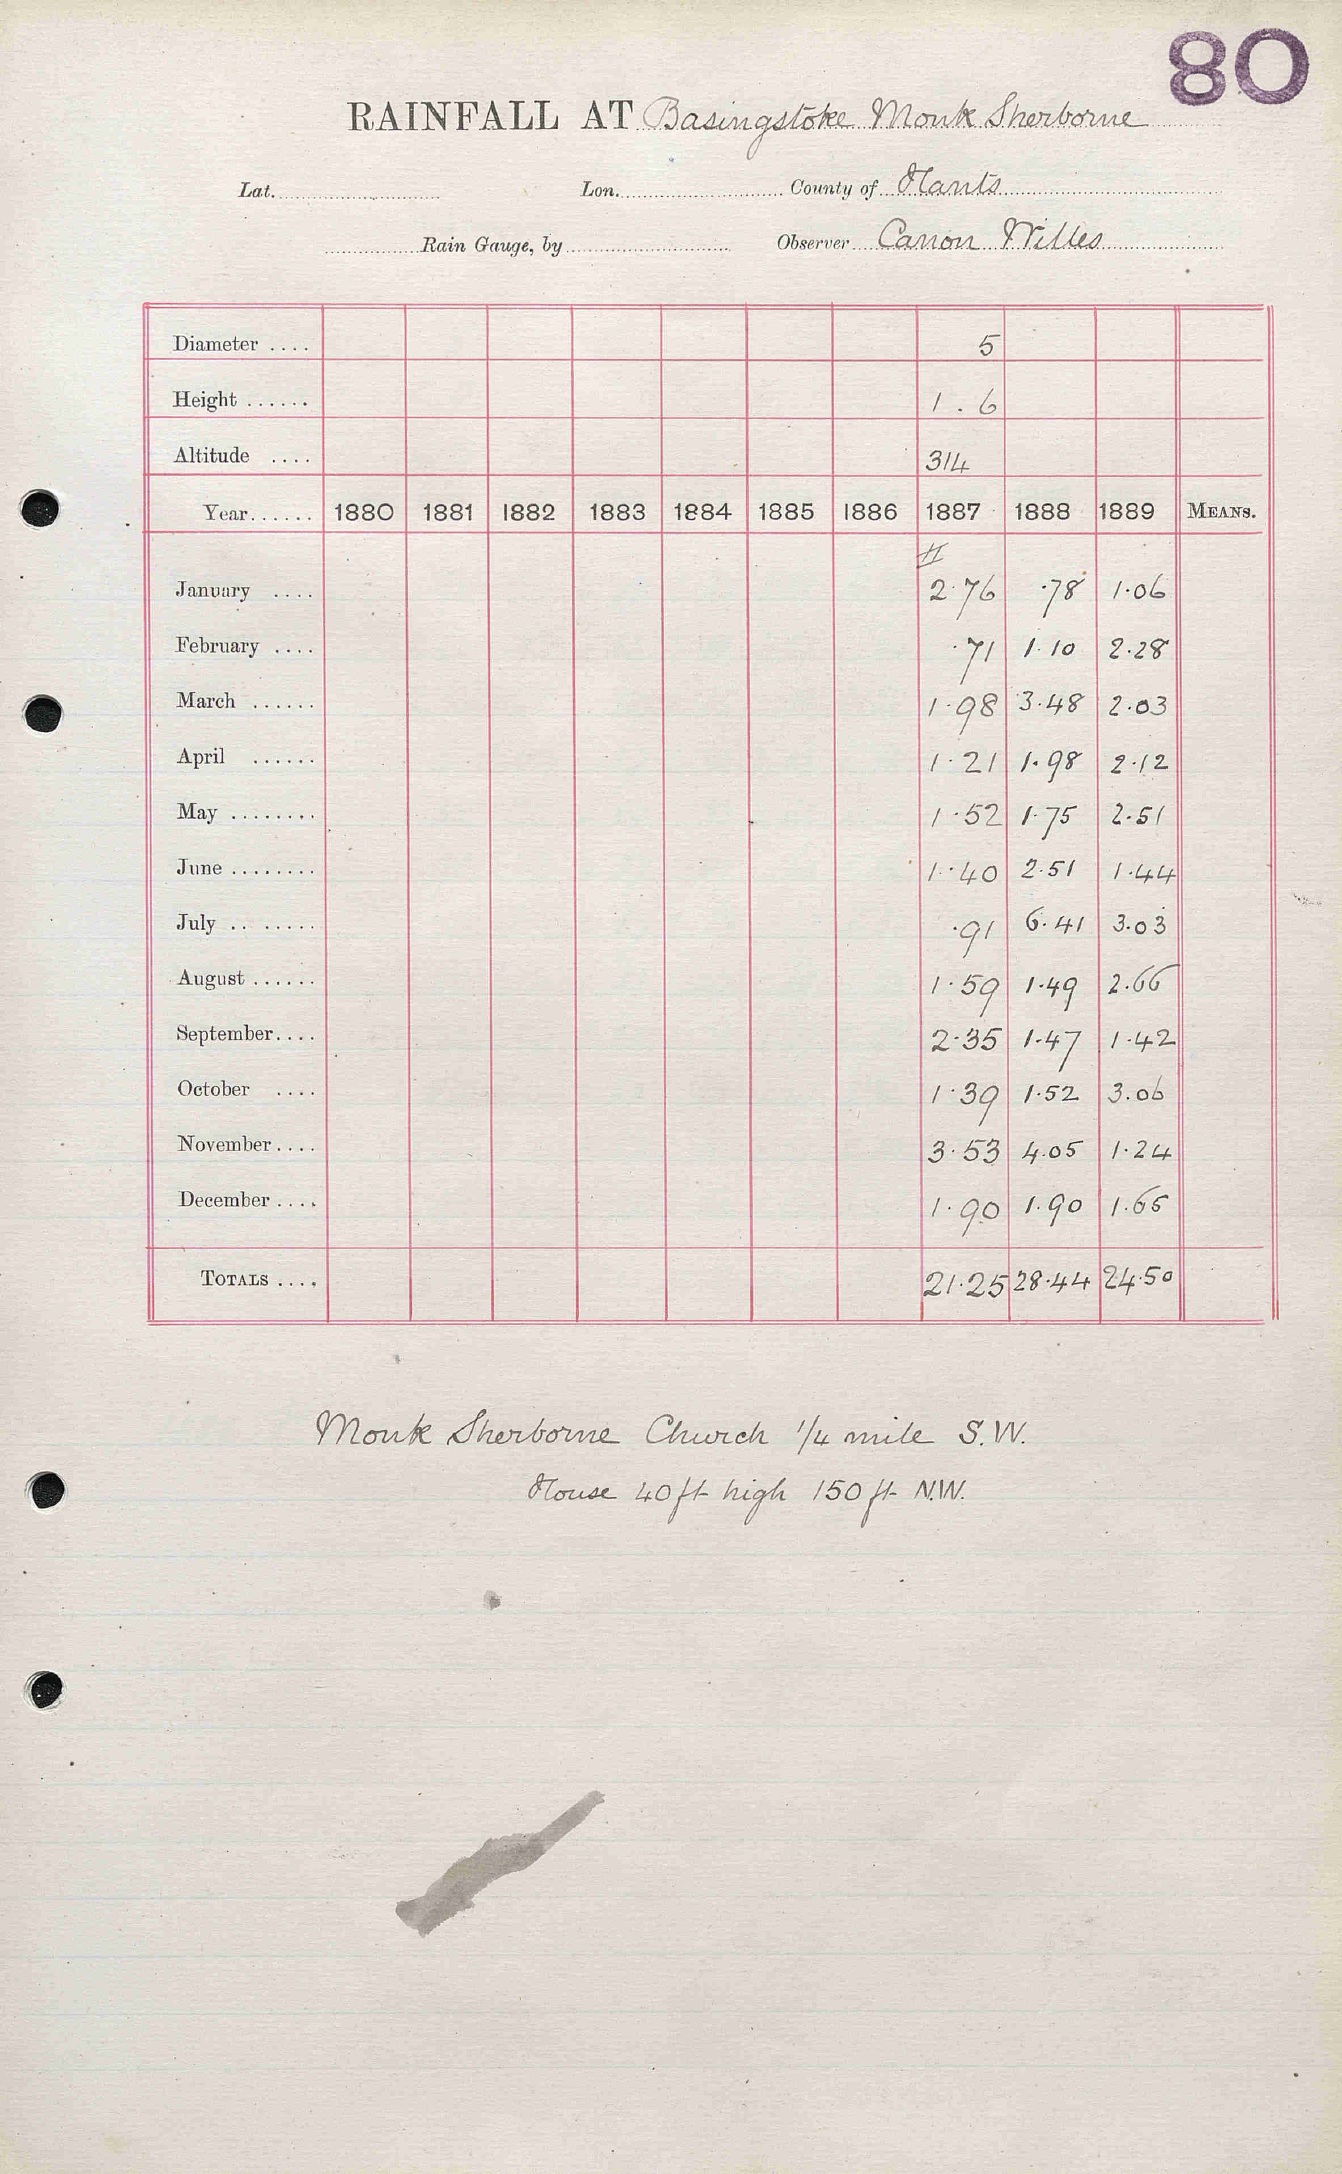 80
RAINFALL AT Basingstoke Monk Sherborne
Lat. Lon. County of Hants
Rain Gauge, by Observer Canon Willes
Diameter .... 5
Height ...... 1 . 6
Altitude .... 314
Year...... 1880 1881 1882 1883 1884 1885 1886 1887 1888 1889 MEANS.
January .... 2.76 .78 1.06
February .... .71 1.10 2.28
March ...... 1.98 3.48 2.03
April ...... 1.21 1.98 2.12
May ........ 1.52 1.75 2.51
June ........ 1.40 2.51 1.44
July ........ .91 6.41 3.03
August ...... 1.59 1.49 2.66
September.... 2.35 1.47 1.42
October .... 1.39 1.52 3.06
November.... 3.53 4.05 1.24
December .... 1.90 1.90 1.65
TOTALS .... 21.25 28.44 24.50
Monk Sherborne Church 1/4 mile S.W.
House 40 ft high 150 ft N.W.